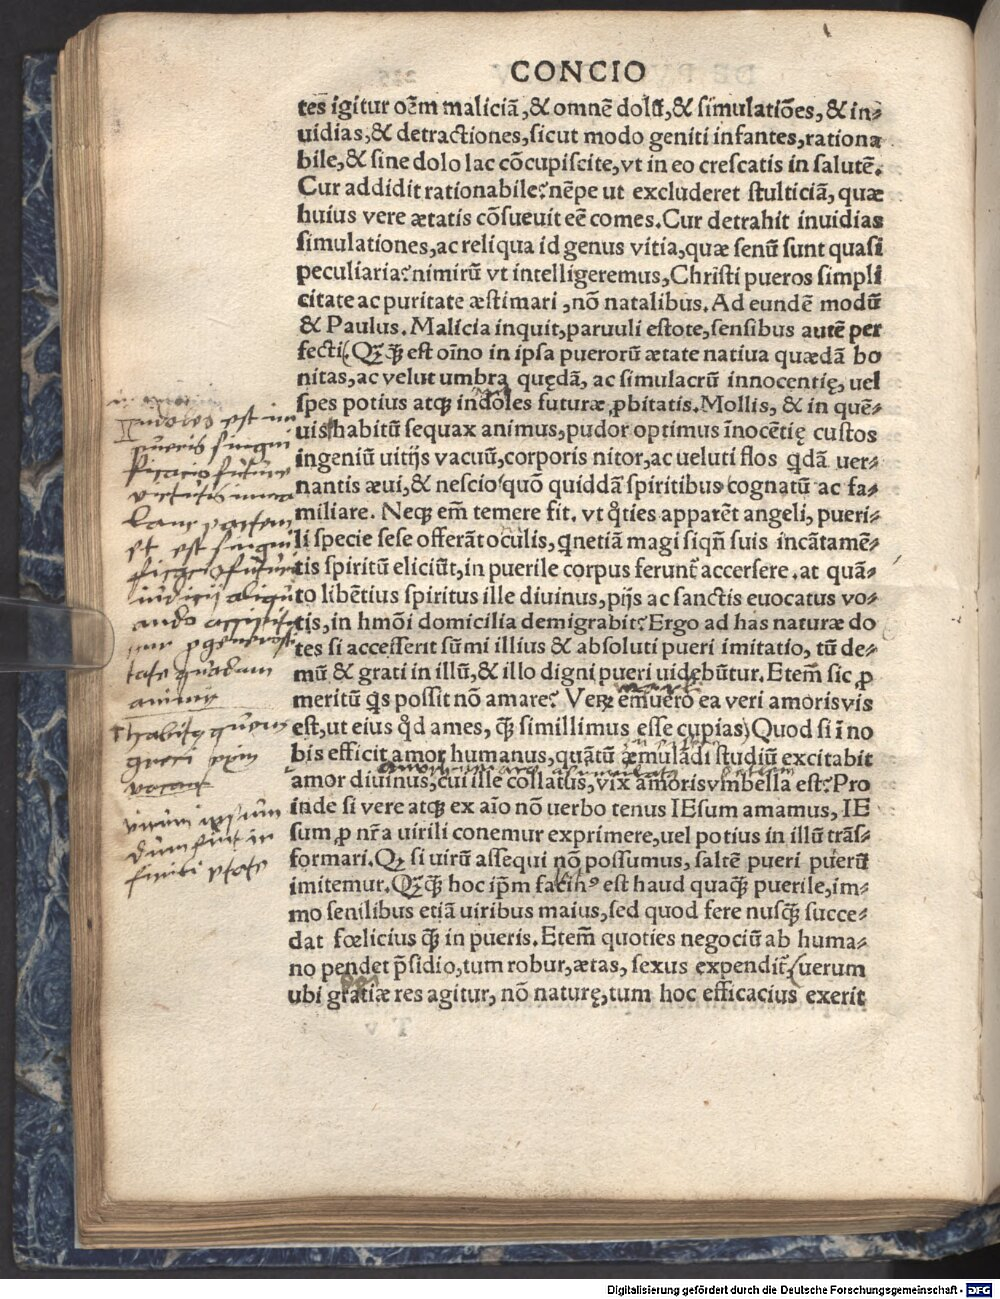 CONCIO
tes igitur oēm maliciā,& omnē dolū,& simulatiōes,& in-
uidias,& detractiones,sicut modo geniti infantes,rationa
bile,& sine dolo lac cōcupiscite,vt in eo crescatis in salutē.
Cur addidit rationabile?nēpe ut excluderet stulticiā, quæ
huius vere ætatis cōsueuit eē comes.Cur detrahit inuidias
simulationes,ac reliqua id genus vitia,quæ senū sunt quasi
peculiaria?nimirū vt intelligeremus,Christi pueros simpli
citate ac puritate æstimari ,nō natalibus. Ad eundē modū
& Paulus. Malicia inquit,paruuli estote,sensibus autē per
fecti. Qꝫ ꝙ̄ est oīno in ipsa puerorū ætate natiua quædā bo
nitas,ac velut umbra quędā, ac simulacrū innocentię, uel
spes potius atqꝫ indoles futuræ ꝓbitatis.Mollis, & in quē-
uis habitū sequax animus,pudor optimus īnocētię custos
ingeniū uitijs vacuū,corporis nitor,ac ueluti flos qdā uer-
nantis æui,& nescio quō quiddā spiritibus cognatū ac fa-
miliare. Neqꝫ em̄ temere fit. vt q̊ties apparēt angeli, pueri-
li specie sese offerāt oculis, qnetiā magi siqn̄ suis incātamē-
tis spiritū eliciūt,in puerile corpus ferunt̄ accersere.at quā-
to libētius spiritus ille diuinus,pijs ac sanctis euocatus vo-
tis,in hmōi domicilia demigrabit?Ergo ad has naturæ do
tes si accesserit sūmi illius & absoluti pueri imitatio, tū de-
mū & grati in illū,& illo digni pueri uidebūtur.Etem̄ sic ꝓ
meritū qs possit nō amare? Veꝝ ēmuero ea veri amoris vis
est,ut eius qd̊ ames, ꝙ̄ simillimus esse cupias)Quod si ī no
bis efficit amor humanus,quātū æmulādi studiū excitabit
amor diuinus,cui ille collatus,vix amoris vmbella est?Pro
inde si vere atqꝫ ex aīo nō uerbo tenus IEsum amamus, IE
sum ꝓ nr̄a uirili conemur exprimere,uel potius in illū trās-
formari.Qꝫ si uirū assequi nō possumus, saltē pueri puerū
imitemur.Qꝫꝙ̄ hoc ip̄m facin⁹ est haud quaꝙ̄ puerile,im-
mo senilibus etiā uiribus maius,sed quod fere nusꝙ̄ succe-
dat fœlicius ꝙ̄ in pueris.Etem̄ quoties negociū ab huma-
no pendet p̄sidio,tum robur,ætas, sexus expendit̄(uerum
ubi gratiæ res agitur, nō naturę,tum hoc efficacius exerit
Indoles est in
pueris
virtutis
est
animi
habitꝰ quem
greci
vocant
Digitalisierung gefördert durch die Deutsche Forschungsgemeinschaft - DFG